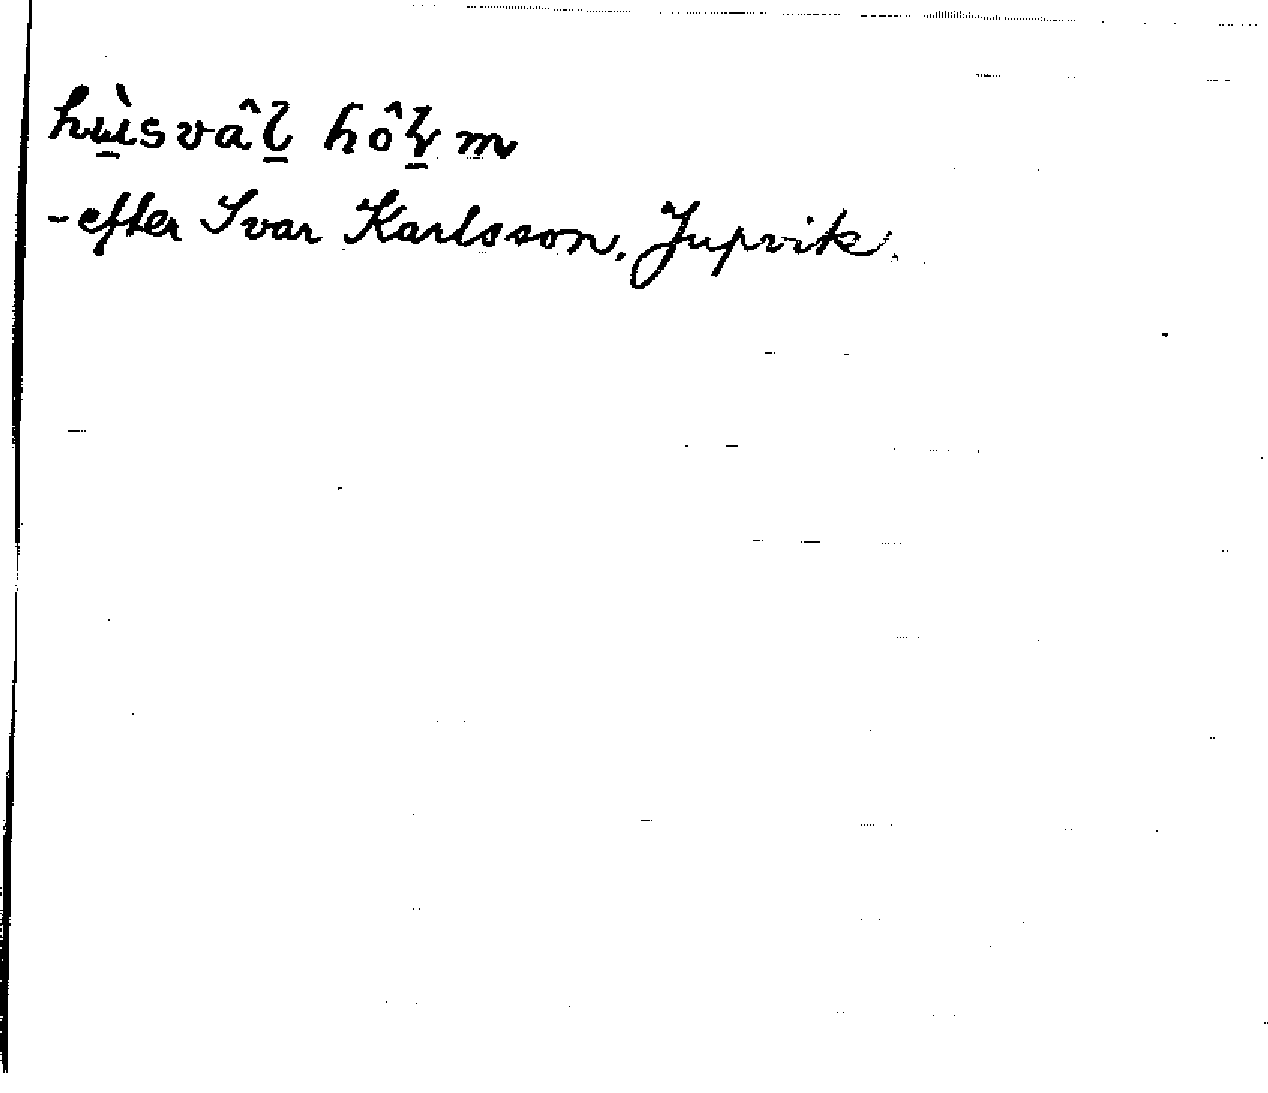 hu̱̇̀svâɩ̱ hôɩ̱m
-efter Ivar Karlsson, Jupvik.